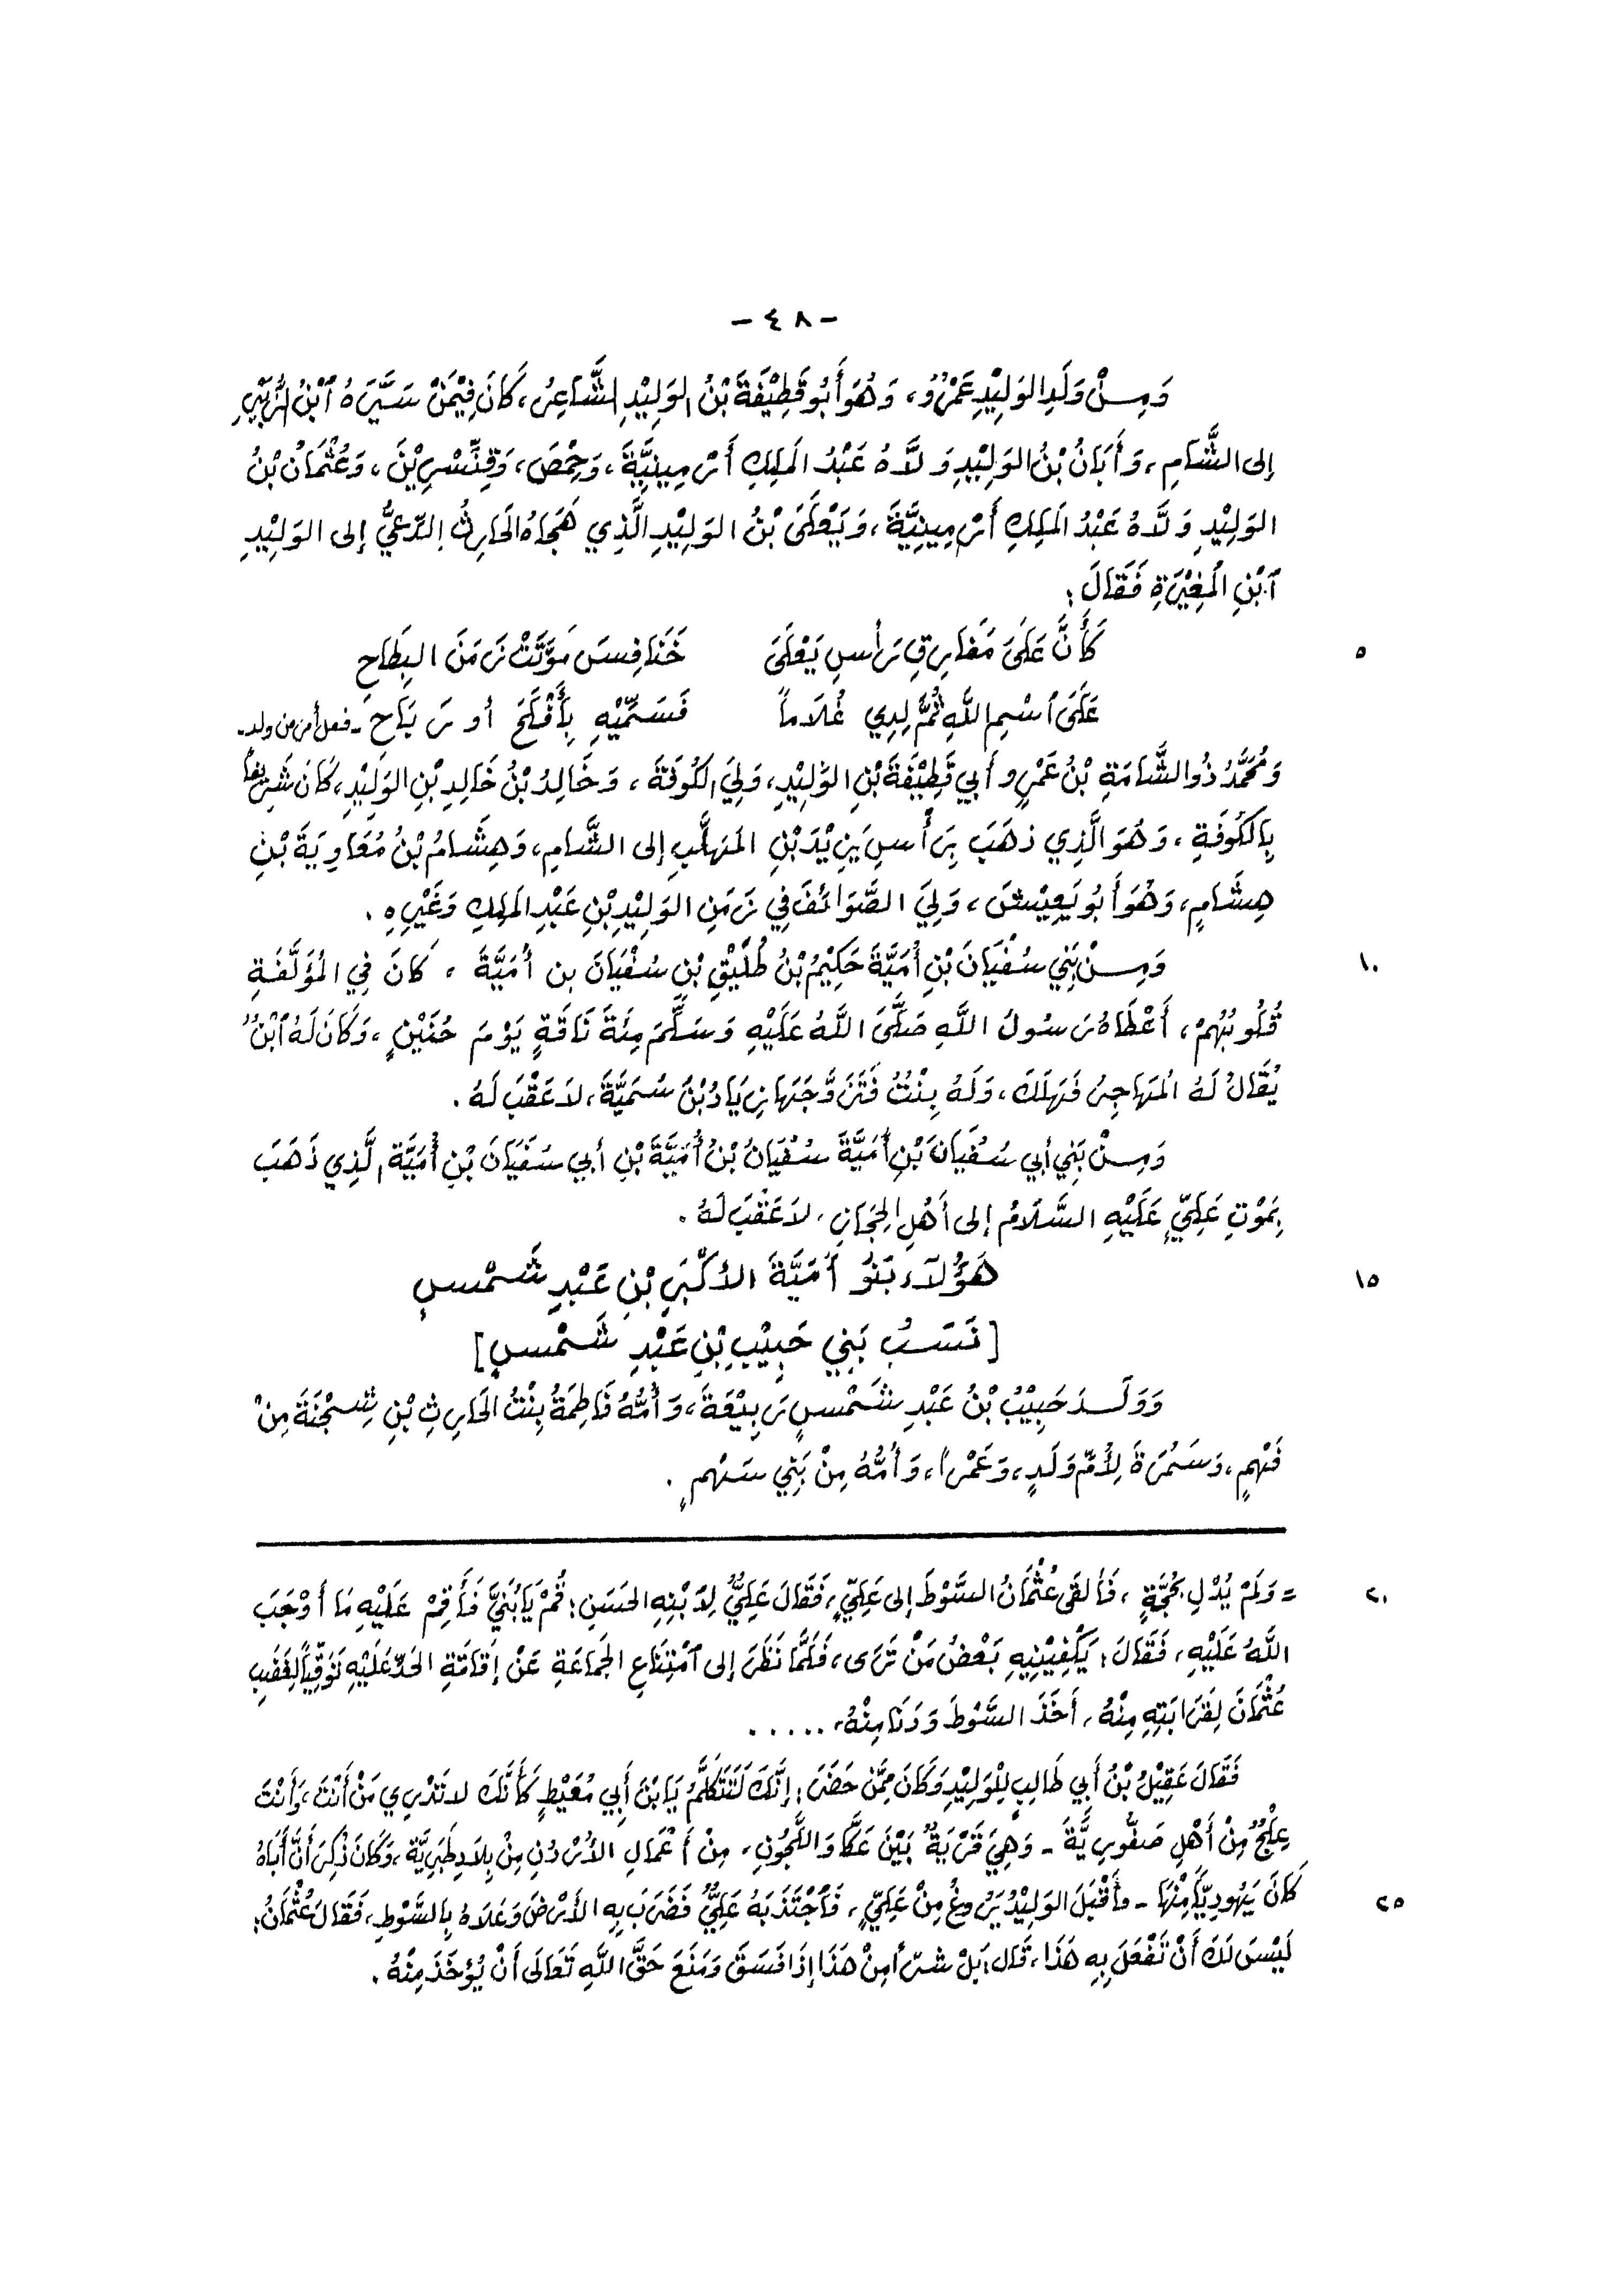 - ٤٨ -
وَمِنْ وَلَدِ الوَلِيْدِ عَمْرٌو، وَهُوَ أَبُو قَطِيْفَةَ بْنُ الوَلِيْدِ الشَّاعِرُ، كَانَ فِيْمَنْ سَيَّرَهُ ٱبْنُ الزُّبَيْرِ
إلى الشَّامِ، وَأَبَانُ بْنُ الوَلِيْدِ وَلاَّهُ عَبْدُ المَلِكِ أَرْمِينِيَّةَ، وَحِمْصَ، وَقِنِّسْرِيْنَ، وَعُثْمَانُ بْنُ
الوَلِيْدِ وَلاَّهُ عَبْدُ المَلِكِ أَرْمِينِيَّةَ، وَيَعْلَىَ بْنُ الوَلِيْدِ الَّذِي هَجَاهُ الحَارِثُ الدَّعِيُّ إلى الوَلِيْدِ
ٱبْنِ المُغِيْرَةِ فَقَالَ:
كَأَنَّ عَلَىَ مَفَارِقِ رَأْسِ يَعْلَىَ خَنَافِسَ مَوَّتَتْ زَمَنَ البِطَاحِ ٥
عَلَىَ ٱسْمِ اللَّهِ ثُمَّ لِدِي غُلاَماً فَسَمِّيْهِ بِأَفْلَحَ أو رَبَاحَ -فعل أمر من ولد-
وَمُحَمَّدُ ذُو الشَّامَةِ بْنُ عَمْرٍو أَبِي قَطِيْفَةَ بْنِ الوَلِيْدِ، وَلِيَ الكُوفَةَ، وَخَالِدُ بْنُ خَالِدِ بْنِ الوَلِيْدِ، كَانَ شَرِيْفاً
بِالكُوفَةِ، وَهُوَ الَّذِي ذَهَبَ بِرَأْسِ يَزِيْدَ بْنِ المُهَلَّبِ إلى الشَّامِ، وَهِشَامُ بْنُ مُعَاوِيَةَ بْنِ
هِشَامٍ، وَهُوَ أَبُو يَعِيْشَ، وَلِيَ الصَّوَائفَ فِي زَمَنِ الوَلِيْدِ بْنِ عَبْدِ المَلِكِ وَغَيْرِهِ.
وَمِنْ بَنِي سُفْيَانَ بْنِ أُمَيَّةَ حَكِيْمُ بْنُ طُلَيْقِ بْنِ سُفْيَانَ بن أُمَيَّةَ، كَانَ فِي المُؤَلَّفَةِ ١٠
قُلُوبُهُمْ، أَعْطَاهُ رَسُولُ اللَّهِ صَلَّىَ اللَّهُ عَلَيْهِ وَسَلَّمَ مِئَةَ نَاقَةٍ يَوْمَ حُنَيْنٍ، وَكَانَ لَهُ ٱبْنٌ
يُقَالُ لَهُ المُهَاجِرُ فَهَلَكَ، وَلَهُ بِنْتٌ فَتَزَوَّجَهَا زِيَادُ بْنُ سُمَيَّةَ، لاَ عَقْبَ لَهُ.
وَمِنْ بَنِي أبي سُفْيَانَ بْنِ أُمَيَّةَ سُفْيَانُ بْنُ أُمَيَّةَ بْنِ أبي سُفْيَانَ بْنِ أُمَيَّةَ الَّذِي ذَهَبَ
بِمَوْتِ عَلِيٍّ عَلَيْهِ السَّلاَمُ إلى أَهْلِ الحِجَازِ، لاَ عَقْبَ لَهُ.
هَؤُلاَءِ بَنُو أُمَيَّةَ الأكْبَرِ بْنِ عَبْدِ شَمْسٍ ١٥
[نَسَبُ بَنِي حَبِيْبِ بْنِ عَبْدِ شَمْسٍ]
وَوَلَدَ حَبِيْبُ بْنُ عَبْدِ شَمْسٍ رَبِيْعَةَ، وَأُمُّهُ فَاطِمَةُ بِنْتُ الحَارِثِ بْنِ شِجْنَةَ مِنْ
فَهْمٍ، وَسَمُرَةَ لِأُمِّ وَلَدٍ، وَعَمْراً، وَأُمُّهُ مِنْ بَنِي سَهْمٍ.
= وَلَمْ يُدْلِ بِحُجَّةٍ، فَأَلقَى عُثْمَانُ السَّوْطَ إلى عَلِيٍّ، فَقَالَ عَلِيٌّ لِابْنِهِ الحَسَنِ: قُمْ يَابُنَيَّ فَأَقِمْ عَلَيْهِ مَا أَوْجَبَ ٢٠
اللَّهُ عَلَيْهِ، فَقَالَ: يَكْفِيْنِيهِ بَعْضُ مَنْ تَرَى، فَلَمَّا نَظَرَ إلى ٱمْتِنَاعِ الجَمَاعَةِ عَنْ إقَامَةِ الحَدِّ عَلَيْهِ تَوَقِّياً لِغَضَبِ
عُثْمَانَ لِقَرَابَتِهِ مِنْهُ، أَخَذَ السَّوْطَ وَدَنَا مِنْهُ، .....
فَقَالَ عَقِيْلُ بْنُ أَبي طَالِبٍ لِلْوَلِيْدِ وَكَانَ مِمَّنْ حَضَرَ: إنَّكَ لَتَتَكَلَّمُ يَا بْنَ أَبِي مُعَيْطٍ كَأَنَّكَ لا تَدْرِي مَنْ أَنْتَ، وَأَنْتَ
عِلْجٌ مِنْ أَهْلِ صَفُّورِيَّةَ - وَهِيَ قَرْيَةٌ بَيْنَ عَكَّا وَاللَّجُونِ، مِنْ أَعْمَالِ الأُرْدُنِ مِنْ بِلاَدِ طَبَرِيَّة، وَكَانَ ذُكِرَ أَنَّ أَبَاهُ
كَانَ يَهُودِيّاً مِنْهَا - وأَقْبَلَ الوَلِيْدُ يَرُوغُ مِنْ عَلِيٍّ، فَٱجْتَذَبَهُ عَلِيٌّ فَضَرَبَ بِهِ الأَرْضَ وَعَلاَهُ بِالسَّوْطِ، فَقَالَ عُثْمَانُ: ٢٥
لَيْسَ لَكَ أَنْ تَفْعَلَ بِهِ هَذَا، قَالَ: بَلْ شرّاً مِنْ هَذَا إذَا فَسَقَ وَمَنَعَ حَقَّ اللَّهِ تَعَالَى أَنْ يُؤخَذَ مِنْهُ.